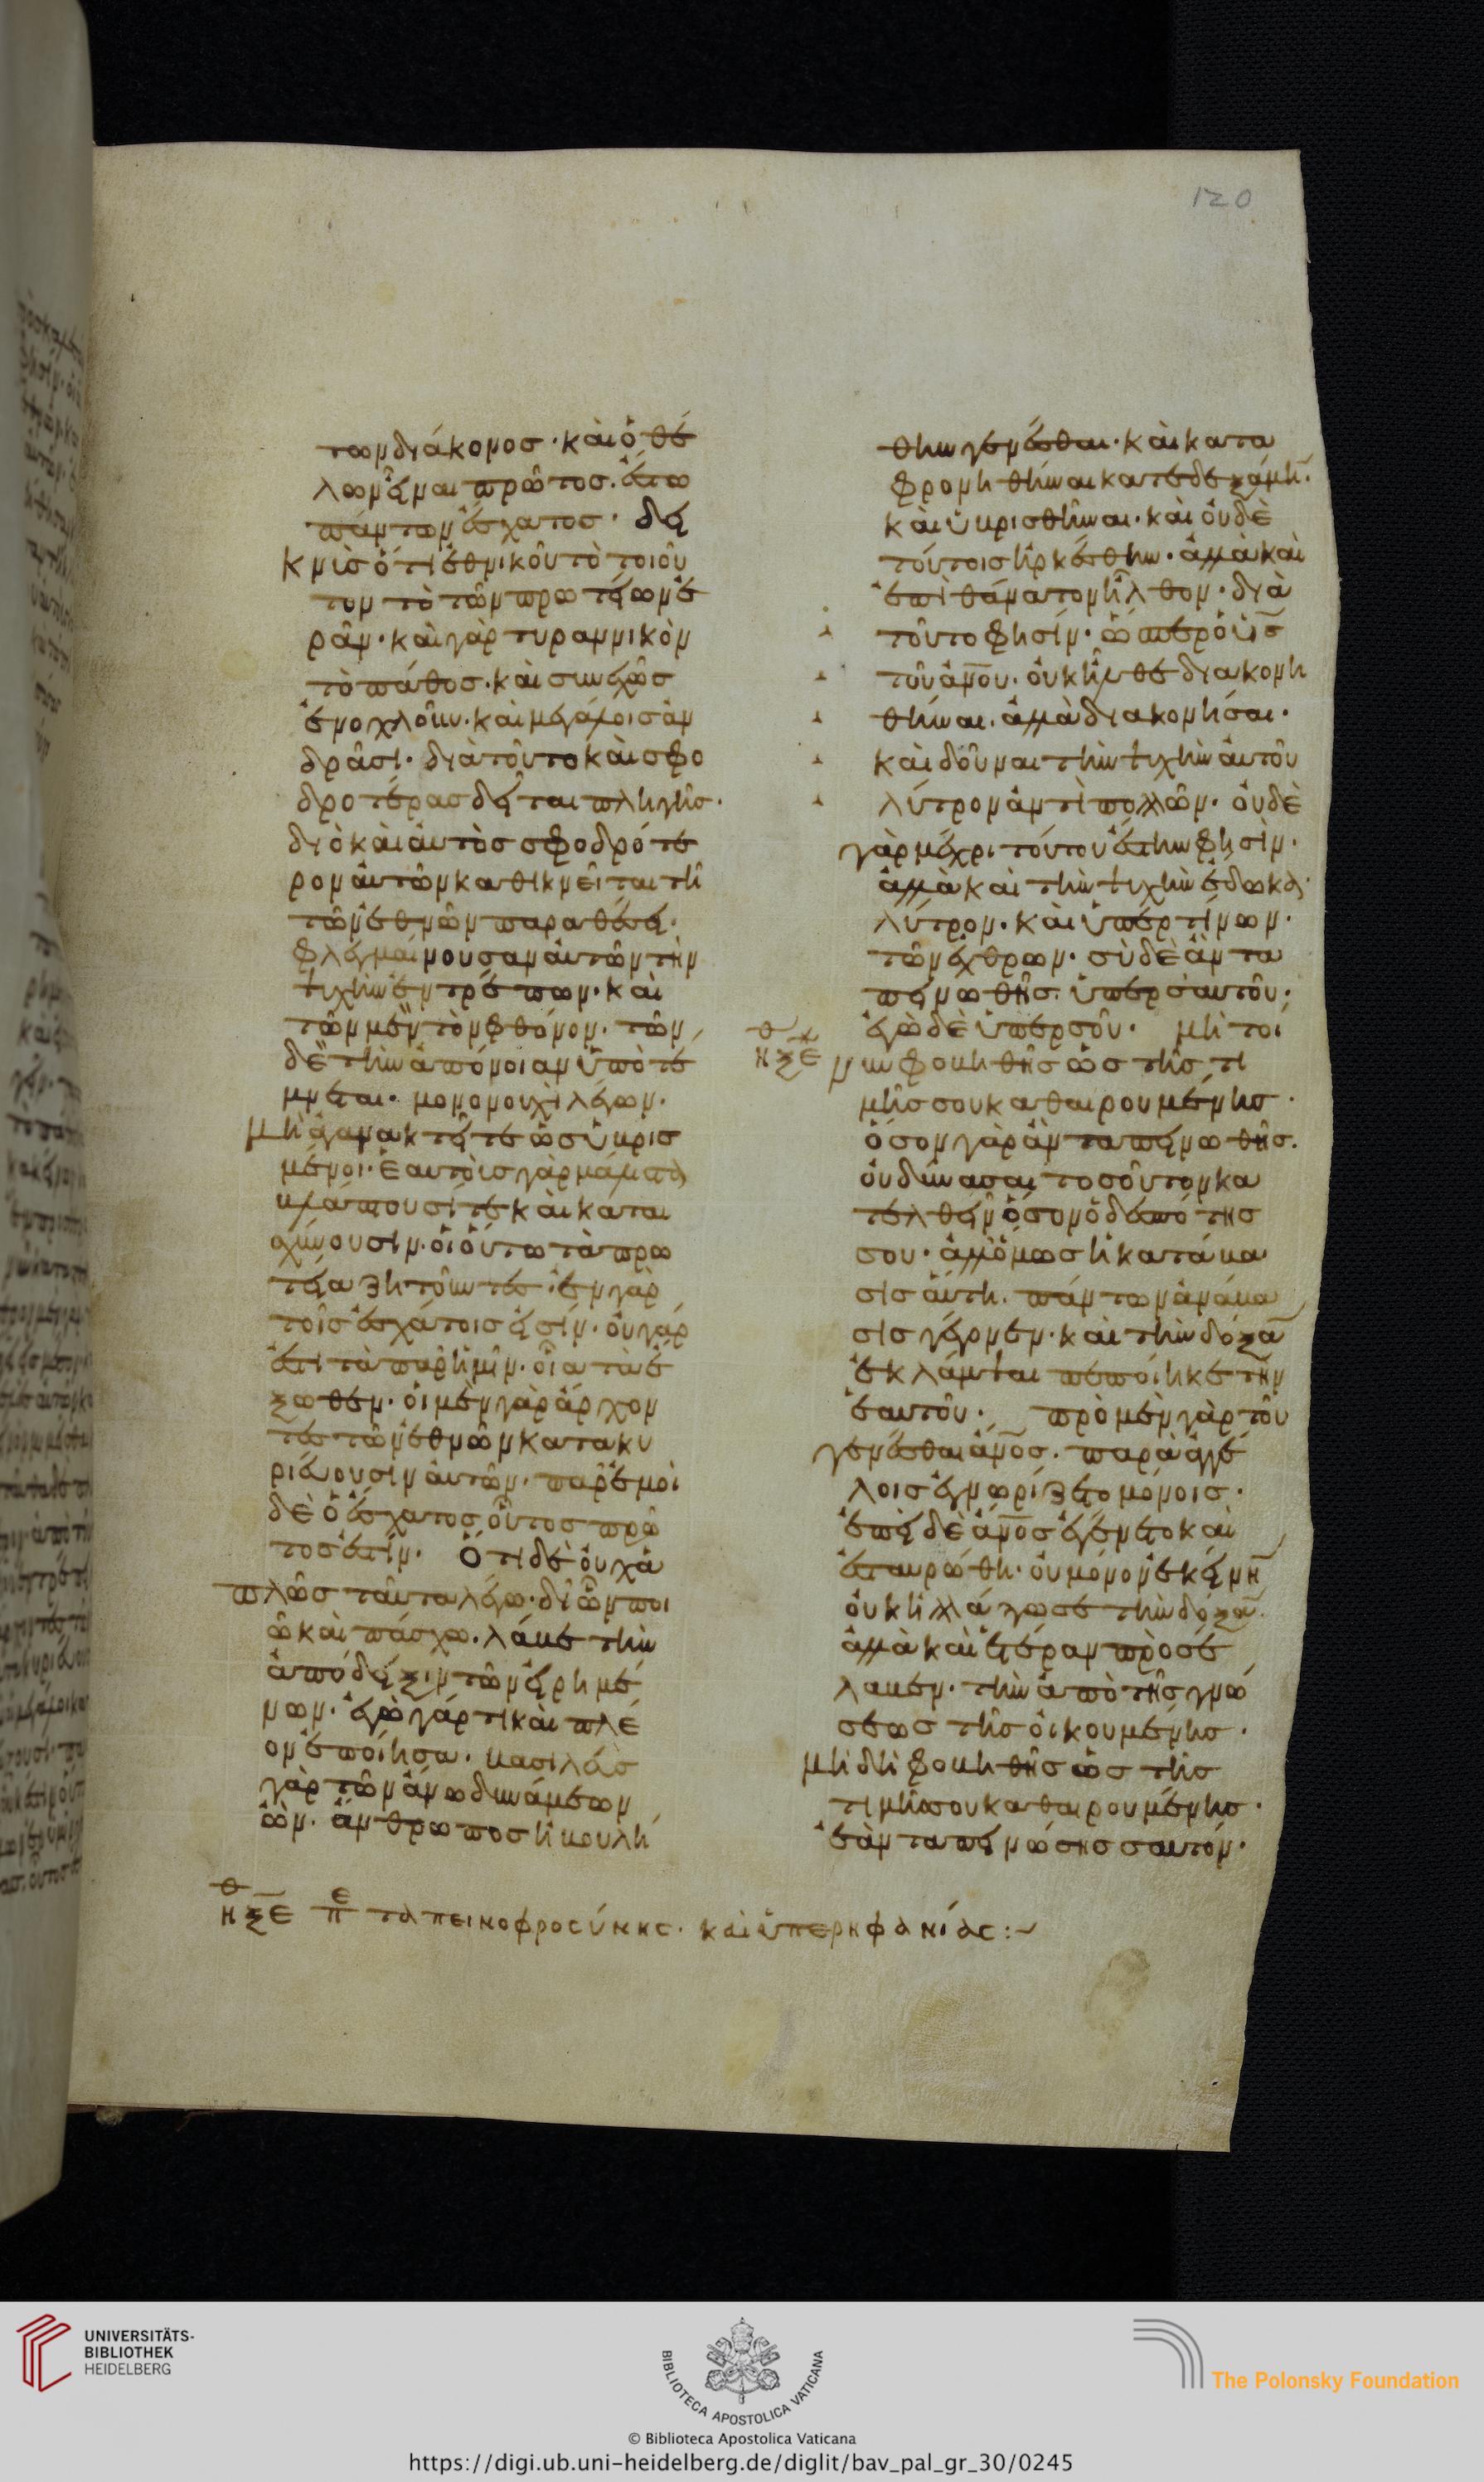 120
των διάκονος· καὶ ὁ θέ
λων εἶναι πρῶτος. ἔστω
πάντων ἔσχατος· δεί
κνὺς ὅτι ἐθνικοῦ τὸ τοιοῦ
τον τὸ τῶν πρωτείων ἐ
ρᾶν· καὶ γὰρ τυραννικὸν
τὸ πάθος· καὶ συνεχῶς
ἐνοχλοῦν· καὶ μεγάλοις ἀν
δράσι· διὰ τοῦτο καὶ σφο
δροτέρας δεῖται πληγῆς·
διὸ καὶ αὐτὸς σφοδρότε
ρον αὐτῶν καθικνεῖται τῆ
τῶν ἐθνῶν παραθέσει·
φλεγμαίνουσαν αὐτῶν τὴν
ψυχὴν ἐντρέπων· καὶ
τῶν μὲν τὸν φθόνον· τῶν
δὲ τὴν ἀπόνοιαν ὑποτέ
μνεται· μονονουχὶ λέγων·
Μὴ ἀγανακτεῖτε ὡς ὑβρισ
μένοι· ἑαυτοὺς γὰρ μάλιστα
βλάπτουσί τε καὶ καται
σχύνουσιν· οἱ οὕτω τὰ πρω
τεῖα ζητοῦντες· ἐν γὰρ
τοῖς ἐσχάτοις εἰσίν· οὐ γάρ
ἐστι τὰ παρ' ἡμῖν· οἷα τὰ ἔ
ξωθεν· οἱ μὲν γὰρ ἄρχον
τες τῶν ἐθνῶν κατακυ
ριεύουσιν αὐτῶν· παρ' ἐμοὶ
δὲ ὁ ἔσχατος οὗτος πρῶ
τος ἐστίν· Ὅτι δὲ οὐχ ἁ
πλῶς ταῦτα λέγω· δι' ὧν ποι
ῶ καὶ πάσχω· λάβε τὴν
ἀπόδειξιν τῶν εἰρημέ
νων· ἐγὼ γάρ τι καὶ πλέ
ον ἐποίησα· βασιλεὺς
γὰρ τῶν ἄνω δυνάμεων
ὢν· ἄνθρωπος ἠβουλή
θην γενέσθαι· καὶ κατα
φρονηθῆναι κατεδεξάμη̅·
καὶ ὑβρισθῆναι· καὶ οὐδὲ
τούτοις ἠρκέσθην· ἀλλὰ καὶ
ἐπὶ θάνατον ἦλθον· διὰ
τοῦτο φησίν· ὥσπερ ὁ υ̅ς̅
τοῦ ἀν̅ου· οὐκ ἦλθε διακονη
θῆναι· ἀλλὰ διακονῆσαι·
καὶ δοῦναι τὴν ψυχὴν αὐτοῦ
λύτρον ἀντὶ πολλῶν· οὐδὲ
γὰρ μέχρι τούτου ἔστην φησὶν·
ἀλλὰ καὶ τὴν ψυχὴν ἔδωκα·
λύτρον· καὶ ὑπὲρ τίνων·
τῶν ἐχθρῶν· σὺ δὲ ἂν τα
πεινωθῆς· ὑπὲρ σαυτοῦ·
ἐγὼ δὲ ὑπὲρ σοῦ· μὴ τοί
ΗΞΕ νυν φοβηθῆς ὡς τῆς τι
μῆς σου καθαιρουμένης·
ὅσον γὰρ ἂν ταπεινωθῆς·
οὐ δύνασαι τοσοῦτον κα
τελθεῖν ὅσον ὁ δεσπότης
σου· ἀλλ' ὅμως ἡ κατάβα
σις αὕτη· πάντων ἀνάβα
σις γέγονεν· καὶ τὴν δόξα̅
ἐκλάμψαι πεποίηκε τὴν
ἑαυτοῦ· πρὸ μὲν γὰρ τοῦ
γενέσθαι ἀν̅ος· παρὰ ἀγγέ
λοις ἐγνωρίζετο μόνοις·
ἐπεὶ δὲ ἀν̅ος ἐγένετο καὶ
ἐσταυρώθη· οὐ μόνον ἐκείνη̅
οὐκ ἠλλάττωσε τὴν δόξα̅·
ἀλλὰ καὶ ἑτέραν προσέ
λαβεν· τὴν ἀπὸ τῆς γνώ
σεως τῆς οἰκουμένης·
μὴ δὴ φοβηθῆς ὡς τῆς
τιμῆς σου καθαιρουμένης·
ἐὰν ταπεινώσης σαυτόν·
ΗΞΕ π̅ε ταπεινοφροσύνης· καὶ ὑπερηφανίας:~
UNIVERSITÄTS-
BIBLIOTHEK
HEIDELBERG
BIBLIOTECA APOSTOLICA VATICANA
The Polonsky Foundation
© Biblioteca Apostolica Vaticana
https://digi.ub.uni-heidelberg.de/diglit/bav_pal_gr_30/0245